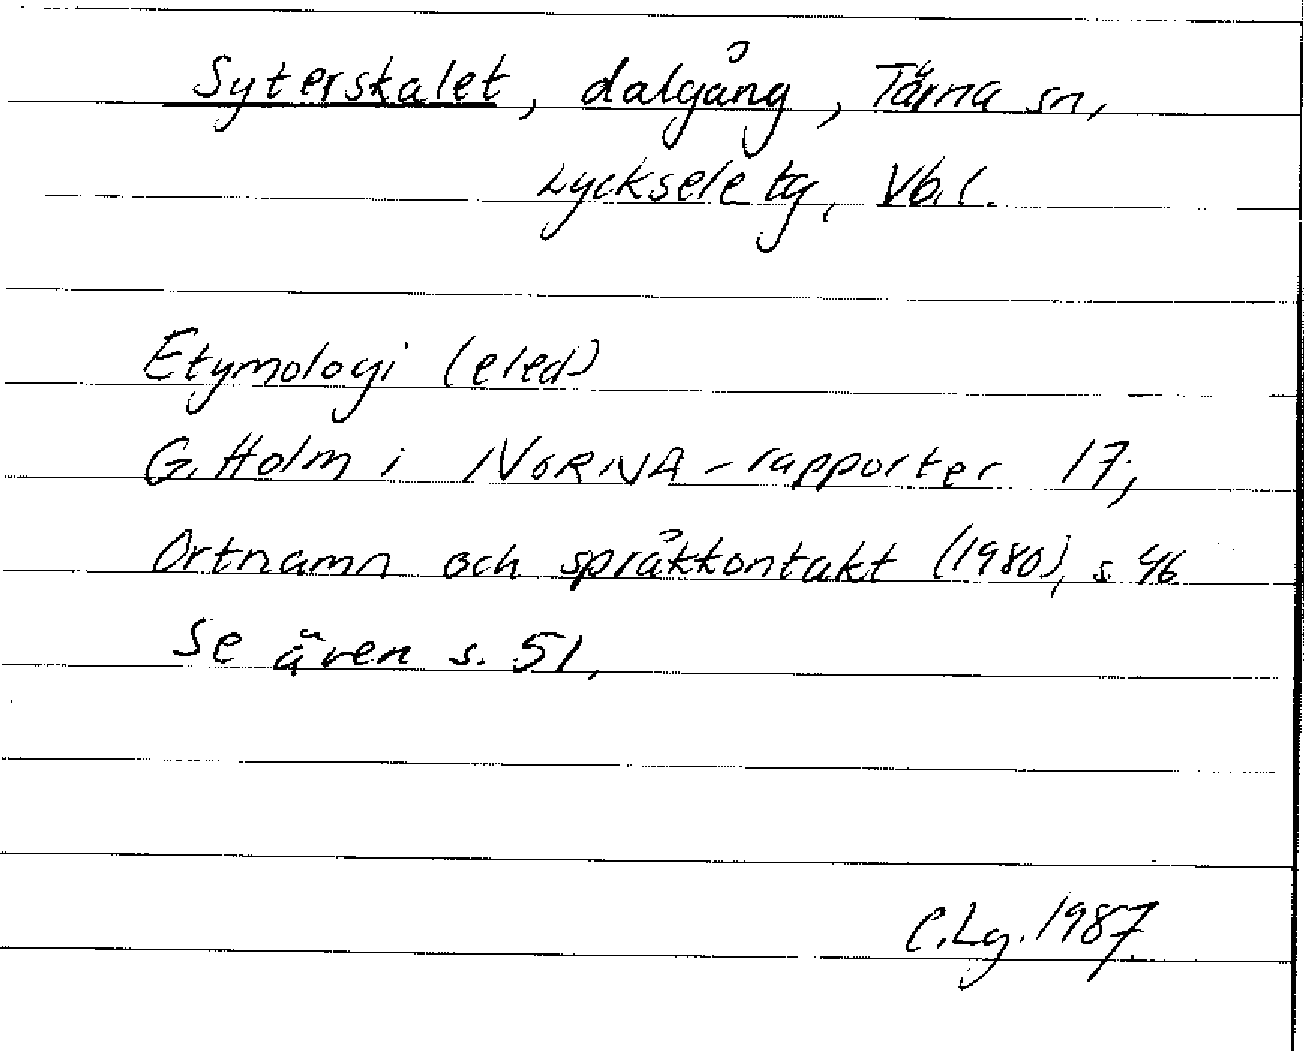 Syterskalet, dalgång, Tärna sn,
Lycksele tg, Vb.l.
Etymologi (eled)
G. Holm i NORNA-rapporter 17;
Ortnamn och språkkontakt (1980), s. 46
Se även s. 51.
C.Lg. 1987